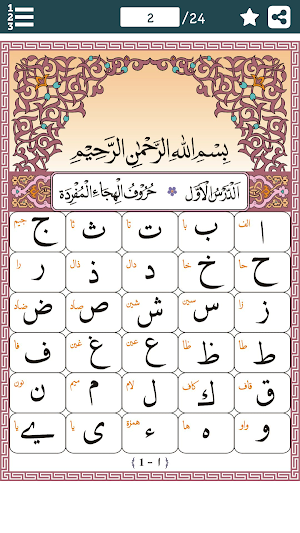 1 2 3
2 /24
بِسْمِ اللهِ الرَّحْمٰنِ الرَّحِيْمِ
اَلدَّرْسُ الْاَوَّلُ حُرُوْفُ الْهِجَاءِ الْمُفْرَدَة
ا الف ب با ت تا ث ثا ج جيم
ح حا خ خا د دال ذ ذال ر را
ز زا س سين ش شين ص صاد ض ضاد
ط طا ظ ظا ع عين غ غين ف فا
ق قاف ك كاف ل لام م ميم ن نون
و واو ه ها ء همزه ى يا ے يا
( ١ - 1 )